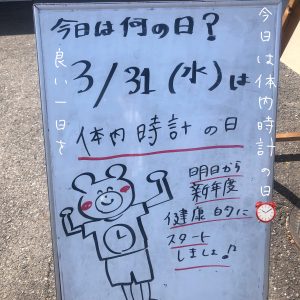 今日は何の日?
3/31(水)は
体内時計の日
明日から
新年度
健康的に
スタート
しましょ♪
今日は体内時計の日
良い一日を